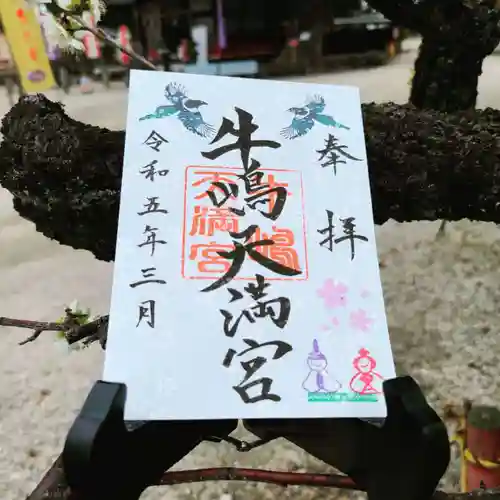 奉拝
牛嶋天満宮
令和五年三月
牛嶋
天満宮